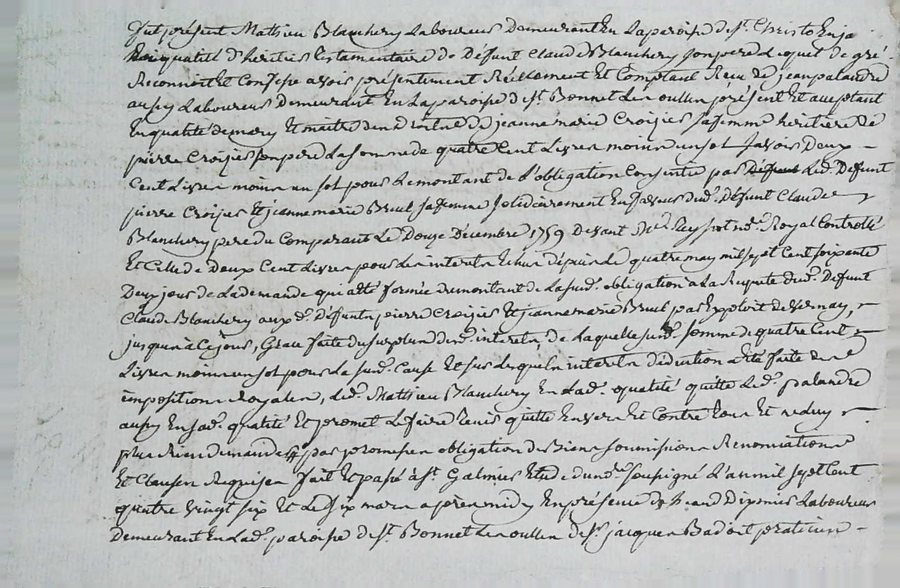 fut présent Mathieu Blanchery Laboureur Demeurant En La paroise de St. Christo En ja
qualité d'heritier testamentaire de Défunt Claude Blanchery son pere Lequel de gré
Reconnoit Et Confesse avoir présentement Réellement Et Comptant Reçu de jean palandre
aussy Laboureur Demeurant En La paroise de St. Bonnet Les oullen présent Et aceptant
En qualité de mary Et maitre des droits de jeanne marie Croizier sa femme heritiere de
pierre Croizier son pere La somme de quatre Cent Livres moins un sol savoir Deux
Cent Livres moins un sol pour Le montant de L'obligation Consentie par Led. Defunt
pierre Croizier Et jeanne marie Bruel sa femme solidairement En faveur dud. Défunt Claude
Blanchery pere du Comparant Le Douze Décembre 1759 Devant Me. Peyssot no.re Royal Controlé
Et Celle de Deux Cent Livres pour Les interets Echus depuis Le quatre may mil sept Cent soixante
Deux jour de La demande qui a été formée du montant de La sud. obligation a La Requete dud. Defunt
Claude Blanchery aux d. Défunts pierre Croizier Et jeanne marie Bruel par Exploit de Vernay,
jusqu'a Ce jour, Grace faite du surplus des d. interets, de Laquelle sud. somme de quatre Cent
Livres moins un sol pour La sud. Cause Et sur Lesquels interets Déduction a Eté faite des
impositions Royales, Led. Mathieu Blanchery En Lad. qualité quitte Led. palandre
aussy En sad. qualité Et promet Le faire Tenir quitte Envers Et Contre tous Et ne luy
plus Rien demander par promesses obligation de Biens soumissions Renonciations
Et Clauses Requises fait Et passé a St. Galmier Etude du no.re soussigné L'an mil sept Cent
quatre vingt six Et Le six mars apres midy En présence de Dipnier Laboureur
Demeurant En Lad. paroise de St. Bonnet Les oullen de Sr. jacques Badoit praticien